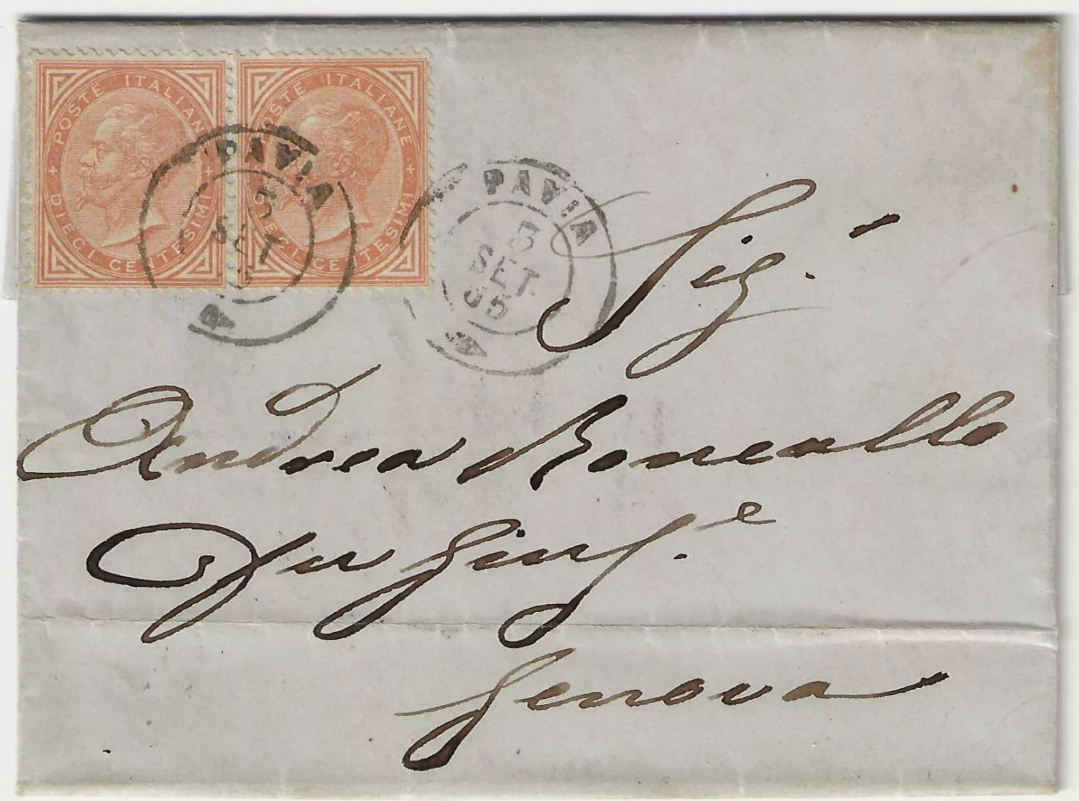 POSTE ITALIANE
DIECI CENTESIMI
POSTE ITALIANE
DIECI CENTESIMI
PAVIA
3
SET
PAVIA
3
SET
65
Sig.r
Andrea Roncallo
Fu Giu.e
Genova